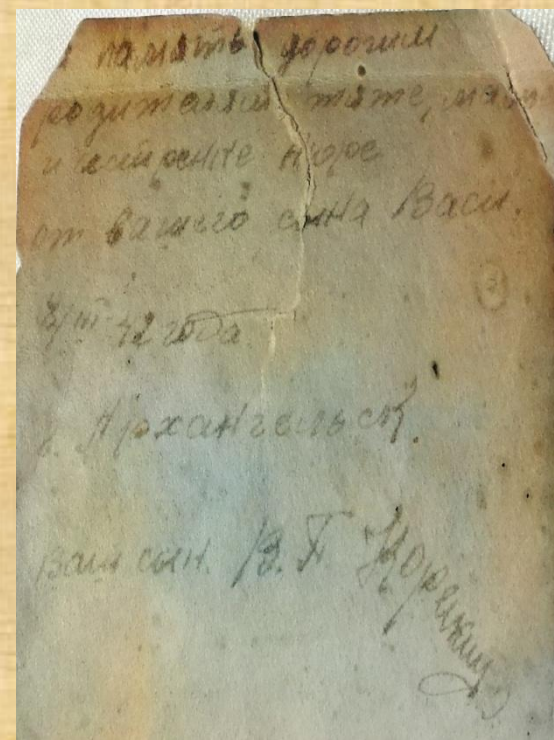 память дорогим
родителям тяте, маме
и сестренке Нюре
от вашего сына Васи.
8/III 42 года
г. Архангельск
Ваш сын. В. П.